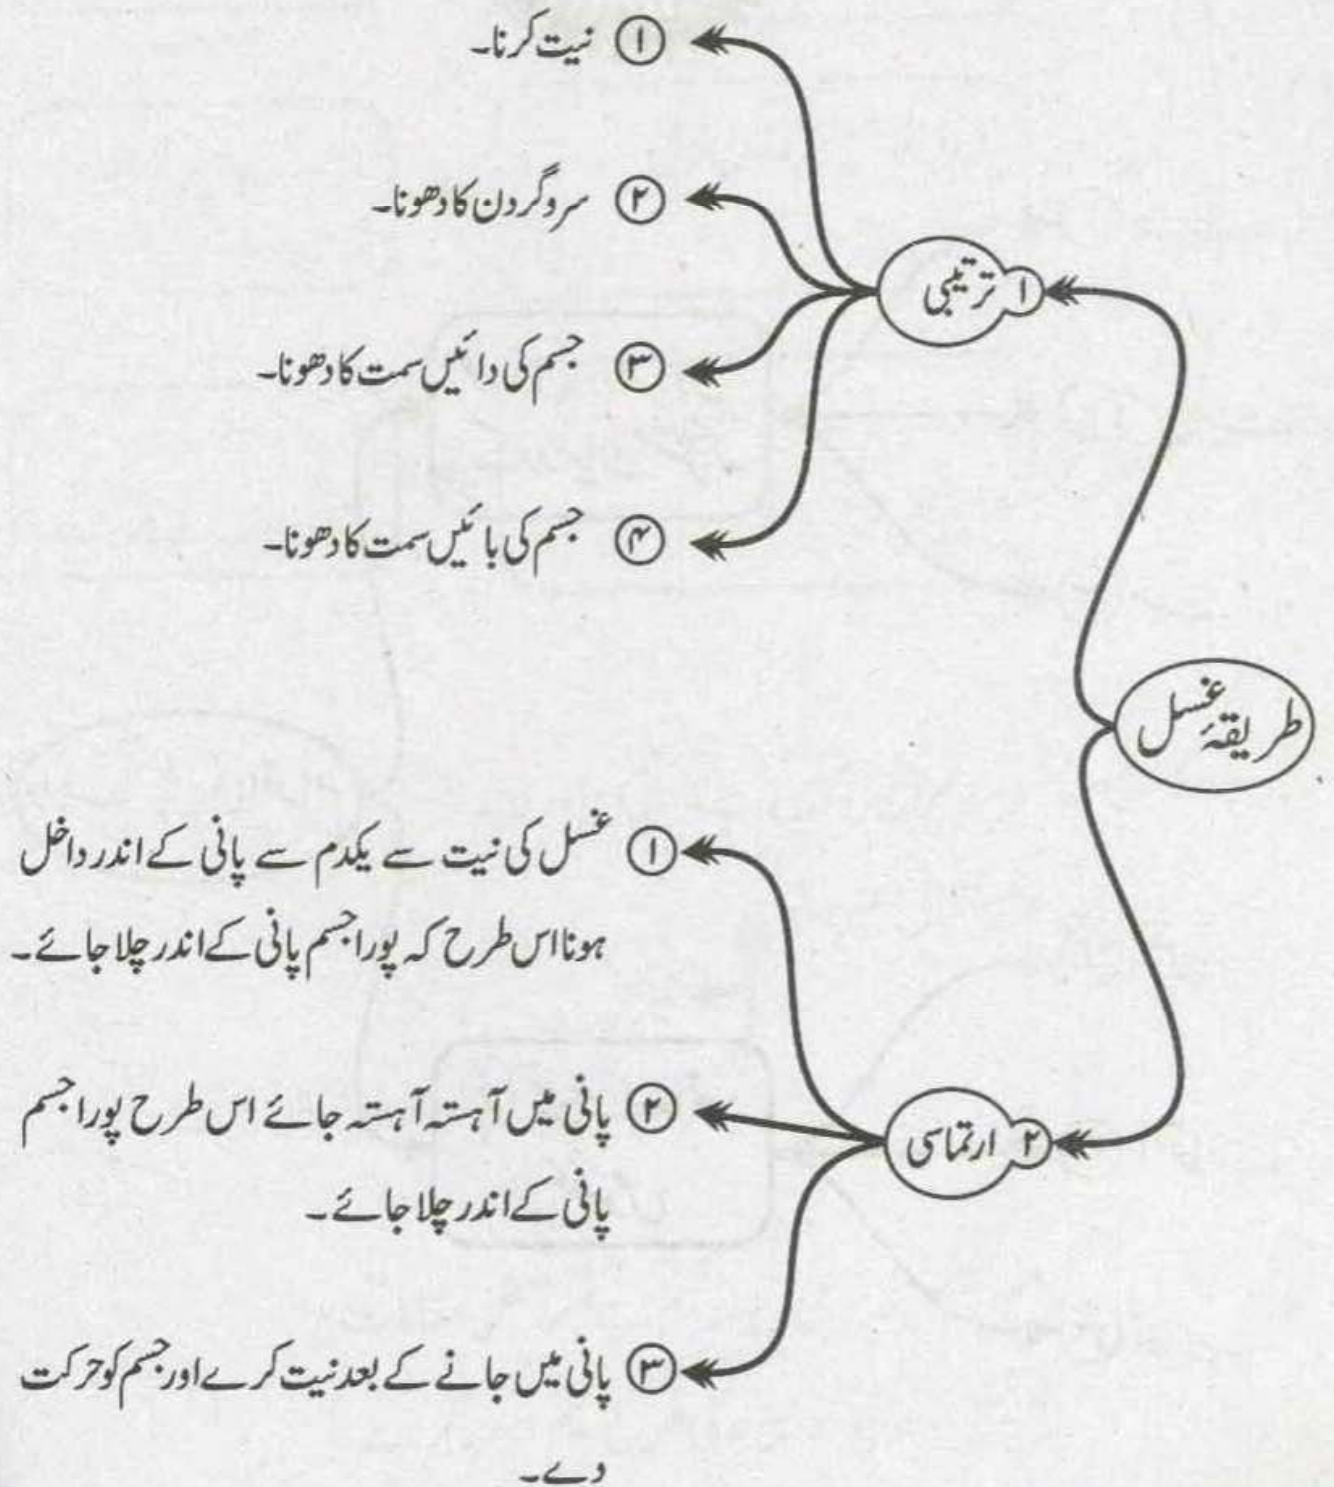 طریقۂ غسل
۱ ترتیبی
۱ نیت کرنا۔
۲ سر و گردن کا دھونا۔
۳ جسم کی دائیں سمت کا دھونا۔
۴ جسم کی بائیں سمت کا دھونا۔
۲ ارتماسی
۱ غسل کی نیت سے یکدم سے پانی کے اندر داخل
ہونا اس طرح کہ پورا جسم پانی کے اندر چلا جائے۔
۲ پانی میں آہستہ آہستہ جائے اس طرح پورا جسم
پانی کے اندر چلا جائے۔
۳ پانی میں جانے کے بعد نیت کرے اور جسم کو حرکت
دے۔